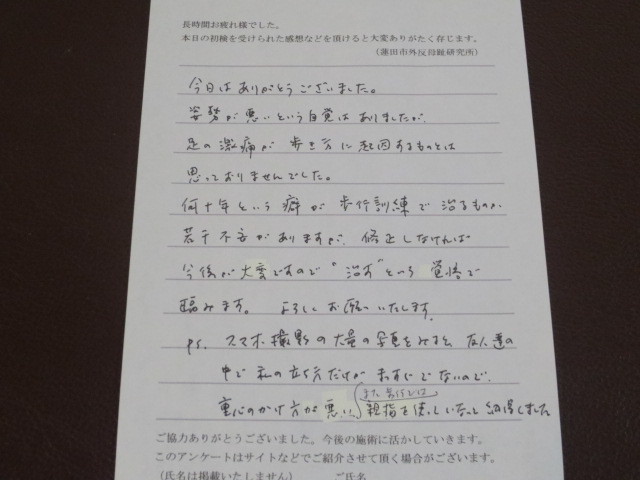 長時間お疲れ様でした。
本日の初検を受けられた感想などを頂けると大変ありがたく存じます。
(蓮田市外反母趾研究所)
今日はありがとうございました。
姿勢が悪いという自覚はありましたが、
足の激痛が歩き方に起因するものとは
思っておりませんでした。
何十年という癖が歩行訓練で治るものか
若干不安がありますが、修正しなければ
今後が大変ですので"治す"という覚悟で
臨みます。よろしくお願いいたします。
P.S. スマホ撮影の大量の写真をみると友人達の
中で私の立ち方だけがまっすぐでないので、
また歩行では
重心のかけ方が悪い、親指を使っていないなと納得しました
ご協力ありがとうございました。今後の施術に活かしていきます。
このアンケートはサイトなどでご紹介させて頂く場合がございます。
(氏名は掲載いたしません) ご氏名